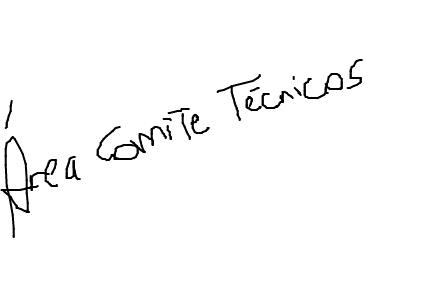 Área Comite Técnicos